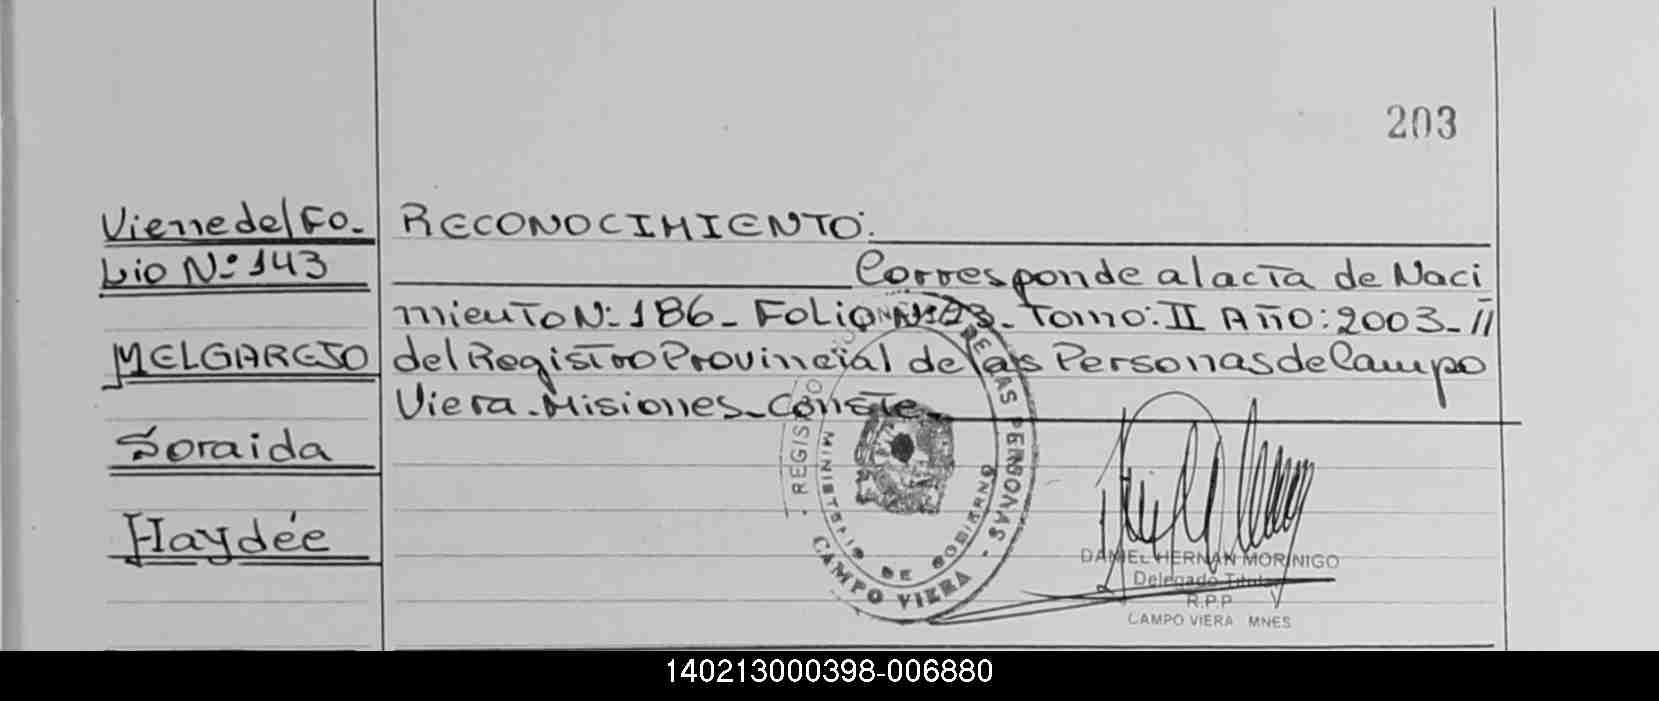 203
Viene del Fo-
lio Nº 143
MELGAREJO
Soraida
Haydée
RECONOCIMIENTO:
Corresponde al acta de Naci
miento Nº: 186 - Folio Nº - Tomo: II Año: 2003 - //
del Registro Provincial de las Personas de Campo
Viera - Misiones - Conste
REGISTRO DE LAS PERSONAS
MINISTERIO DE GOBIERNO
CAMPO VIERA
DANIEL HERNAN MORINIGO
Delegado Titular
R.P.P
CAMPO VIERA MNES
140213000398-006880